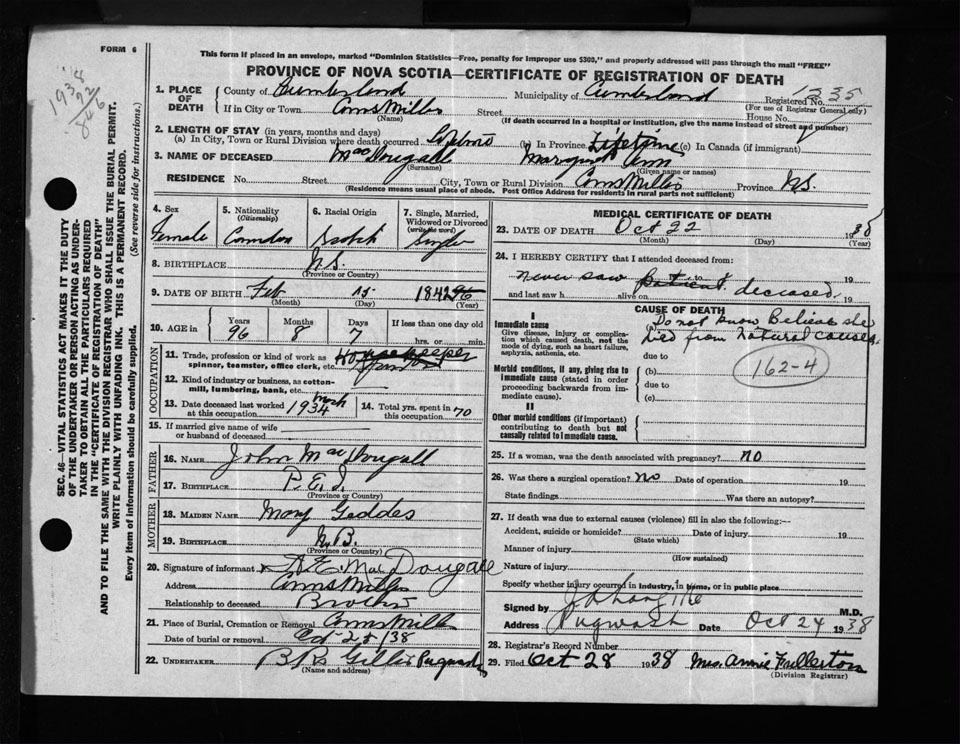 FORM 6
This form if placed in an envelope, marked "Dominion Statistics—Free, penalty for improper use $300," and properly addressed will pass through the mail "FREE"
PROVINCE OF NOVA SCOTIA—CERTIFICATE OF REGISTRATION OF DEATH
1938
92
846
SEC. 46—VITAL STATISTICS ACT MAKES IT THE DUTY
OF THE UNDERTAKER OR PERSON ACTING AS UNDER-
TAKER TO OBTAIN ALL THE PARTICULARS REQUIRED
IN THE "CERTIFICATE OF REGISTRATION OF DEATH"
AND TO FILE THE SAME WITH THE DIVISION REGISTRAR WHO SHALL ISSUE THE BURIAL PERMIT.
WRITE PLAINLY WITH UNFADING INK. THIS IS A PERMANENT RECORD.
Every item of information should be carefully supplied. (See reverse side for instructions.)
1. PLACE OF DEATH
County of Cumberland Municipality of Cumberland Registered No. 1235
(For use of Registrar General only)
If in City or Town Conns Mills Street House No.
(Name)
(If death occurred in a hospital or institution, give the name instead of street and number)
2. LENGTH OF STAY (in years, months and days)
(a) In City, Town or Rural Division where death occurred (b) In Province Lifetime (c) In Canada (if immigrant)
3. NAME OF DECEASED MacDougall Margaret Ann
(Surname) (Given name or names)
RESIDENCE No. Street City, Town or Rural Division Conns Mills Province N.S.
(Residence means usual place of abode. Post Office Address for residents in rural parts not sufficient)
4. Sex 5. Nationality (Citizenship) 6. Racial Origin 7. Single, Married, Widowed or Divorced (write the word)
Female Canadian Scotch Single
8. BIRTHPLACE N.S.
(Province or Country)
9. DATE OF BIRTH Feb 15 1842
(Month) (Day) (Year)
10. AGE in Years Months Days If less than one day old
96 8 7 hrs. or min.
OCCUPATION
11. Trade, profession or kind of work as spinner, teamster, office clerk, etc. Housekeeper
12. Kind of industry or business, as cotton-mill, lumbering, bank, etc.
13. Date deceased last worked at this occupation March 1934 14. Total yrs. spent in this occupation 70
15. If married give name of wife or husband of deceased
FATHER
16. NAME John MacDougall
17. BIRTHPLACE P.E.I.
(Province or Country)
MOTHER
18. MAIDEN NAME Mary Geddes
19. BIRTHPLACE N.B.
(Province or Country)
20. Signature of informant A.E. MacDougall
Address Conns Mills
Relationship to deceased Brother
21. Place of Burial, Cremation or Removal Conns Mills
Date of burial or removal Oct 25/38
22. UNDERTAKER Gillis Pugwash
(Name and address)
MEDICAL CERTIFICATE OF DEATH
23. DATE OF DEATH Oct 22 1938
(Month) (Day) (Year)
24. I HEREBY CERTIFY that I attended deceased from:
never saw patient to 19
and last saw h alive on deceased 19
CAUSE OF DEATH
I
Immediate cause
Give disease, injury or complication which caused death, not the mode of dying, such as heart failure, asphyxia, asthenia, etc.
(a) Do not know Believe she
died from natural causes.
due to
Morbid conditions, if any, giving rise to immediate cause (stated in order proceeding backwards from immediate cause).
(b)
due to
(c)
162-4
II
Other morbid conditions (if important) contributing to death but not causally related to immediate cause.
25. If a woman, was the death associated with pregnancy? no
26. Was there a surgical operation? No Date of operation 19
State findings Was there an autopsy?
27. If death was due to external causes (violence) fill in also the following:—
Accident, suicide or homicide? Date of injury 19
(State which)
Manner of injury
(How sustained)
Nature of injury
Specify whether injury occurred in industry, in home, or in public place
Signed by M.D.
Address Pugwash Date Oct 24 1938
28. Registrar's Record Number
29. Filed Oct 28 1938 Mrs. Annie Fullerton
(Division Registrar)